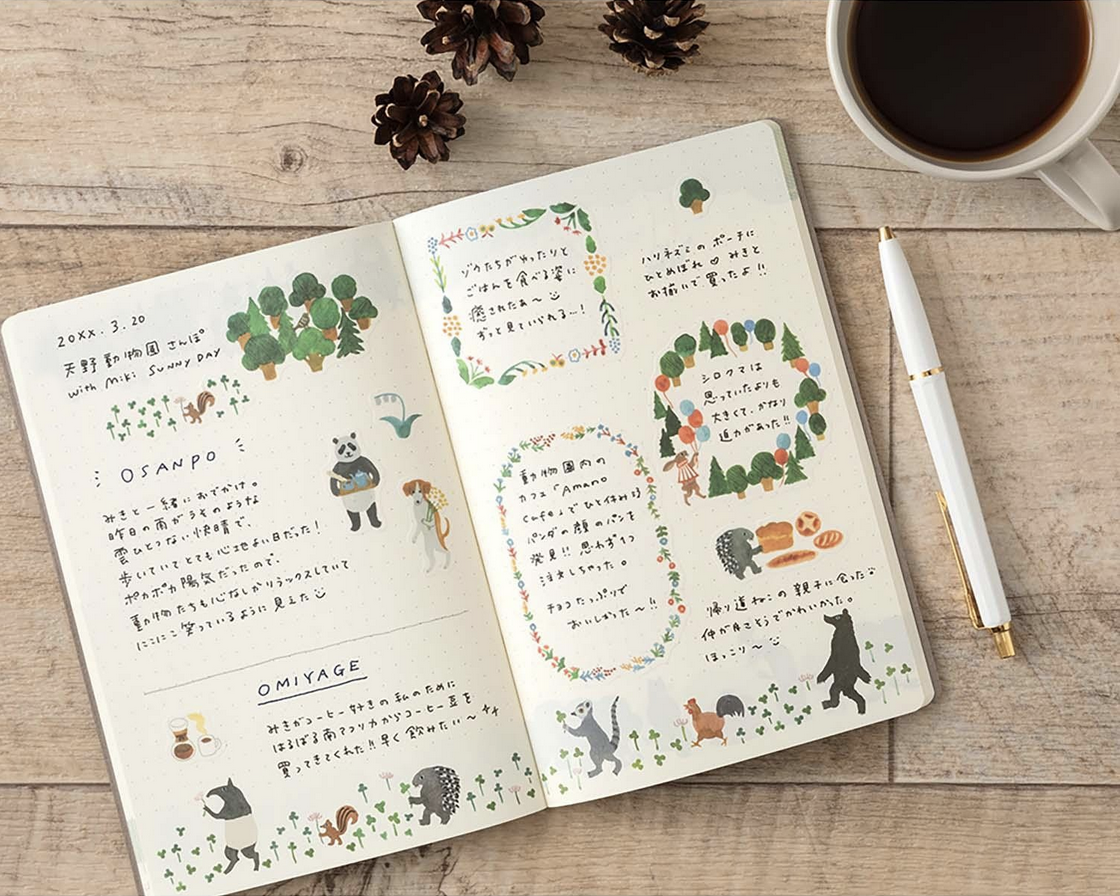 20XX.3.20
天野動物園さんぽ
with Miki SUNNY DAY
OSANPO
みきと一緒におでかけ。
昨日の雨がうそのような
雲ひとつない快晴で、
歩いていてとても心地よい日だった！
ポカポカ陽気だったので、
動物たちも心なしかリラックスしていて
にこにこ笑っているように見えた
OMIYAGE
みきがコーヒー好きの私のために
はるばる南アフリカからコーヒー豆を
買ってきてくれた!!早く飲みたい〜
ゾウたちがゆったりと
ごはんを食べる姿に
癒されたぁ〜
ずっと見ていられる〜！
ハリネズミのポーチに
ひとめぼれ♡みきと
お揃いで買ったよ!!
シロクマは
思っていたよりも
大きくて、かなり
迫力があった!!
動物園内の
カフェ「Amano
Cafe」でひと休み
パンダの顔のパンを
発見!!思わず1つ
注文しちゃった。
チョコたっぷりで
おいしかった〜!!
帰り道ねこの親子に会った
仲が良さそうでかわいかった。
ほっこり〜